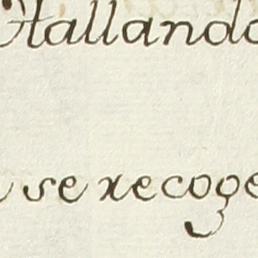 Hallando
se recoge